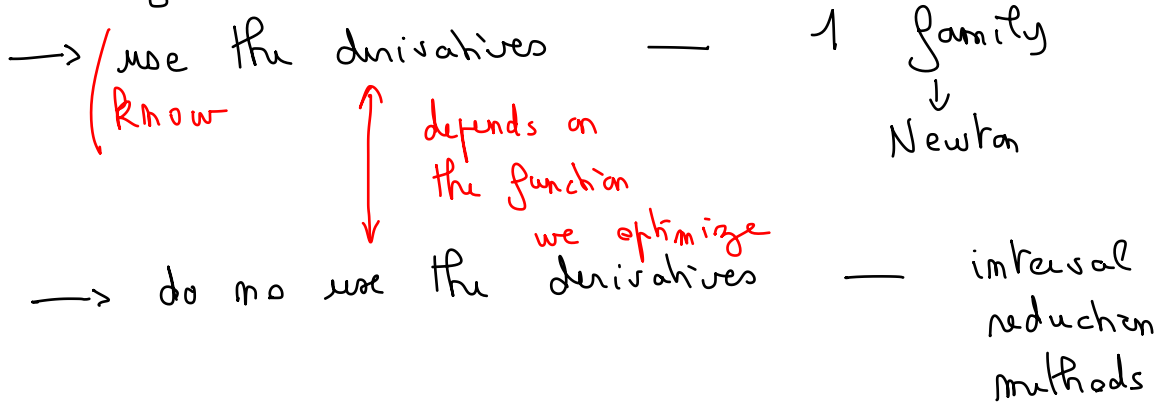 → use the derivatives — 1 family
know
↓
depends on
Newton
the function
we optimize
→ do no use the derivatives — interval
reduction
methods